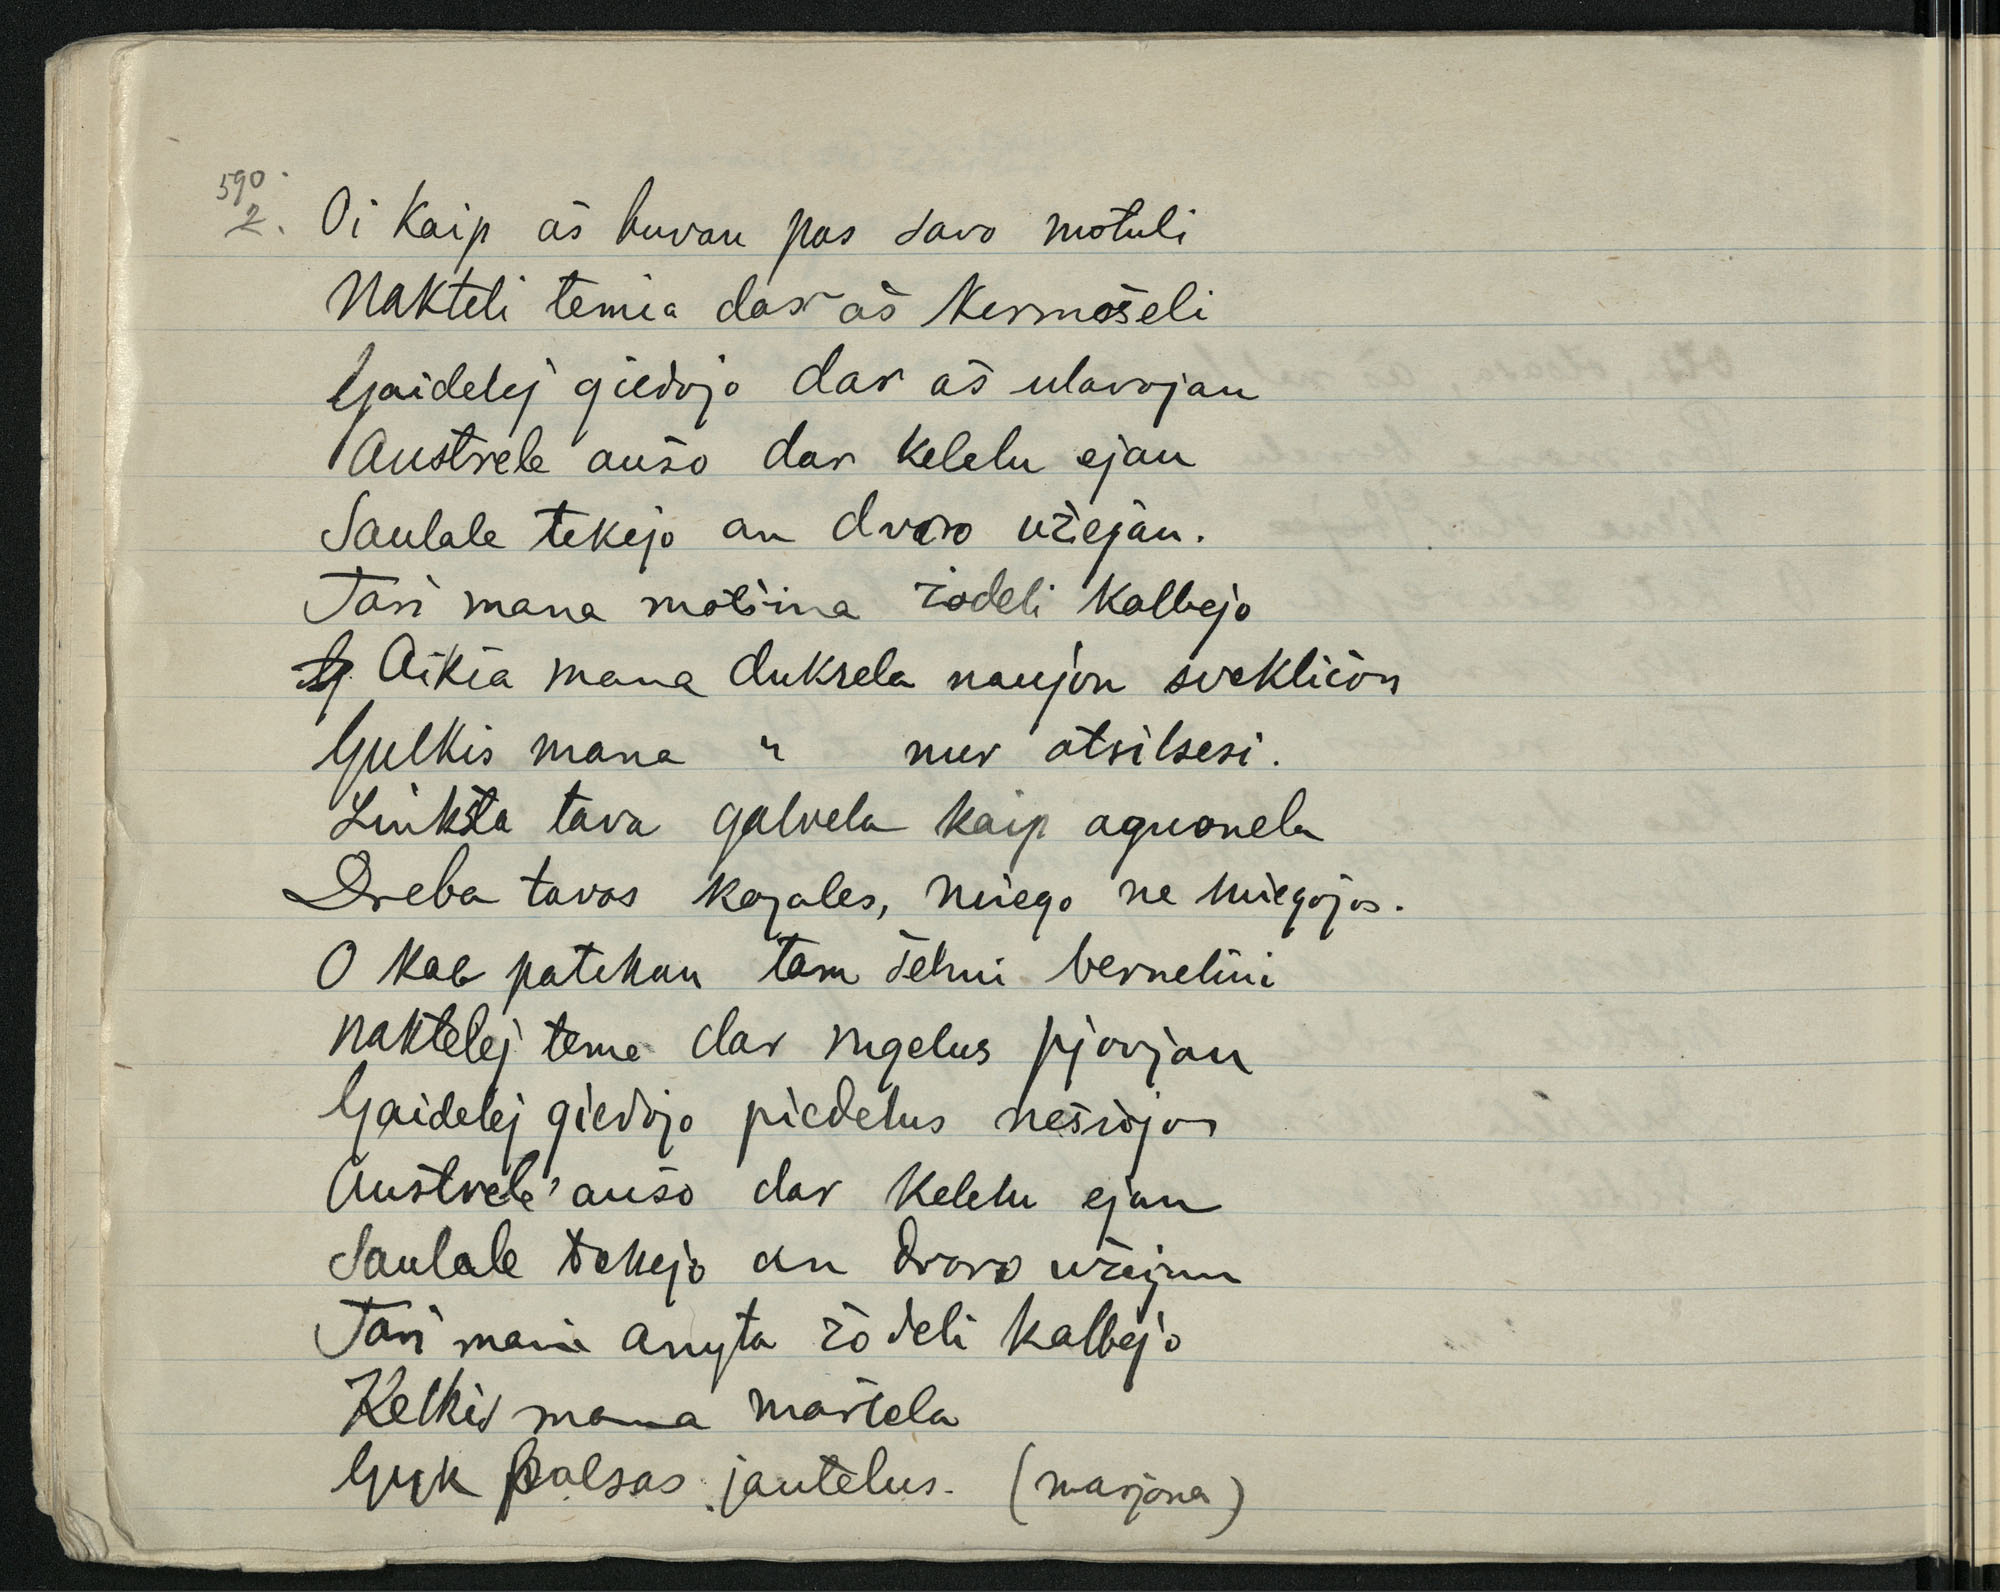 590.
2. Oi Kaip aš buvau pas savo motuli
Nakteli temia dar aš Kermošeli
Gaidelej giedojo dar aš ulavojau
Austrele aušo dar kelelu ejau
Saulale tekejo an dvaro užejau.
Tari mana motina žodeli kalbejo
Aikia mana duksela naujon svekličon
Gulkis mana " nur atsilsesi.
Linksta tava galvela kaip aguonela
Dreba tavas kojales, miego ne miegojos.
O kab patekau tam šelmi bernelini
naktelej teme dar rugelus pjovjau
Gaidelej giedojo piedelus nešiojau
Austrele aušo dar kelelu ejau
Saulale tekejo an dvaro užejau
Tari mana anyta žodeli kalbejo
Kelkis mana martela
Gyk palsas jautelus. (marjona)